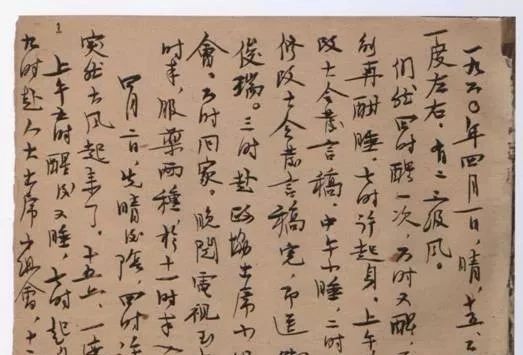 一九六〇年四月一日,晴,十五、六
一度左右,有二三级风。
们于四时醒一次,六时又醒,
刻再酣睡,七时许起身。上午
改大会发言稿。中午小睡,二时
修改大会发言稿完,即送
俊瑞。三时赴政协出席小组
会,六时回家。晚阅电视至
时半,服药两种,于十一时半入
四月二日,先晴后阴,四时许
突然大风起来了。十五、一度
上午五时醒后又睡,七时起身
九时赴人大出席小组会,十二
1